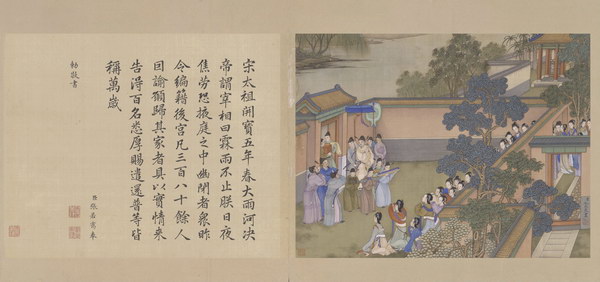 宋太祖開寶五年春大雨河決
帝謂宰相曰霖雨不止朕日夜
焦勞恐掖庭之中幽閉者眾昨
令編籍後宮凡三百八十餘人
因諭願歸其家者具以實情來
告得百名悉厚賜遣還普等皆
稱萬歲
臣張若靄奉
勅敬書